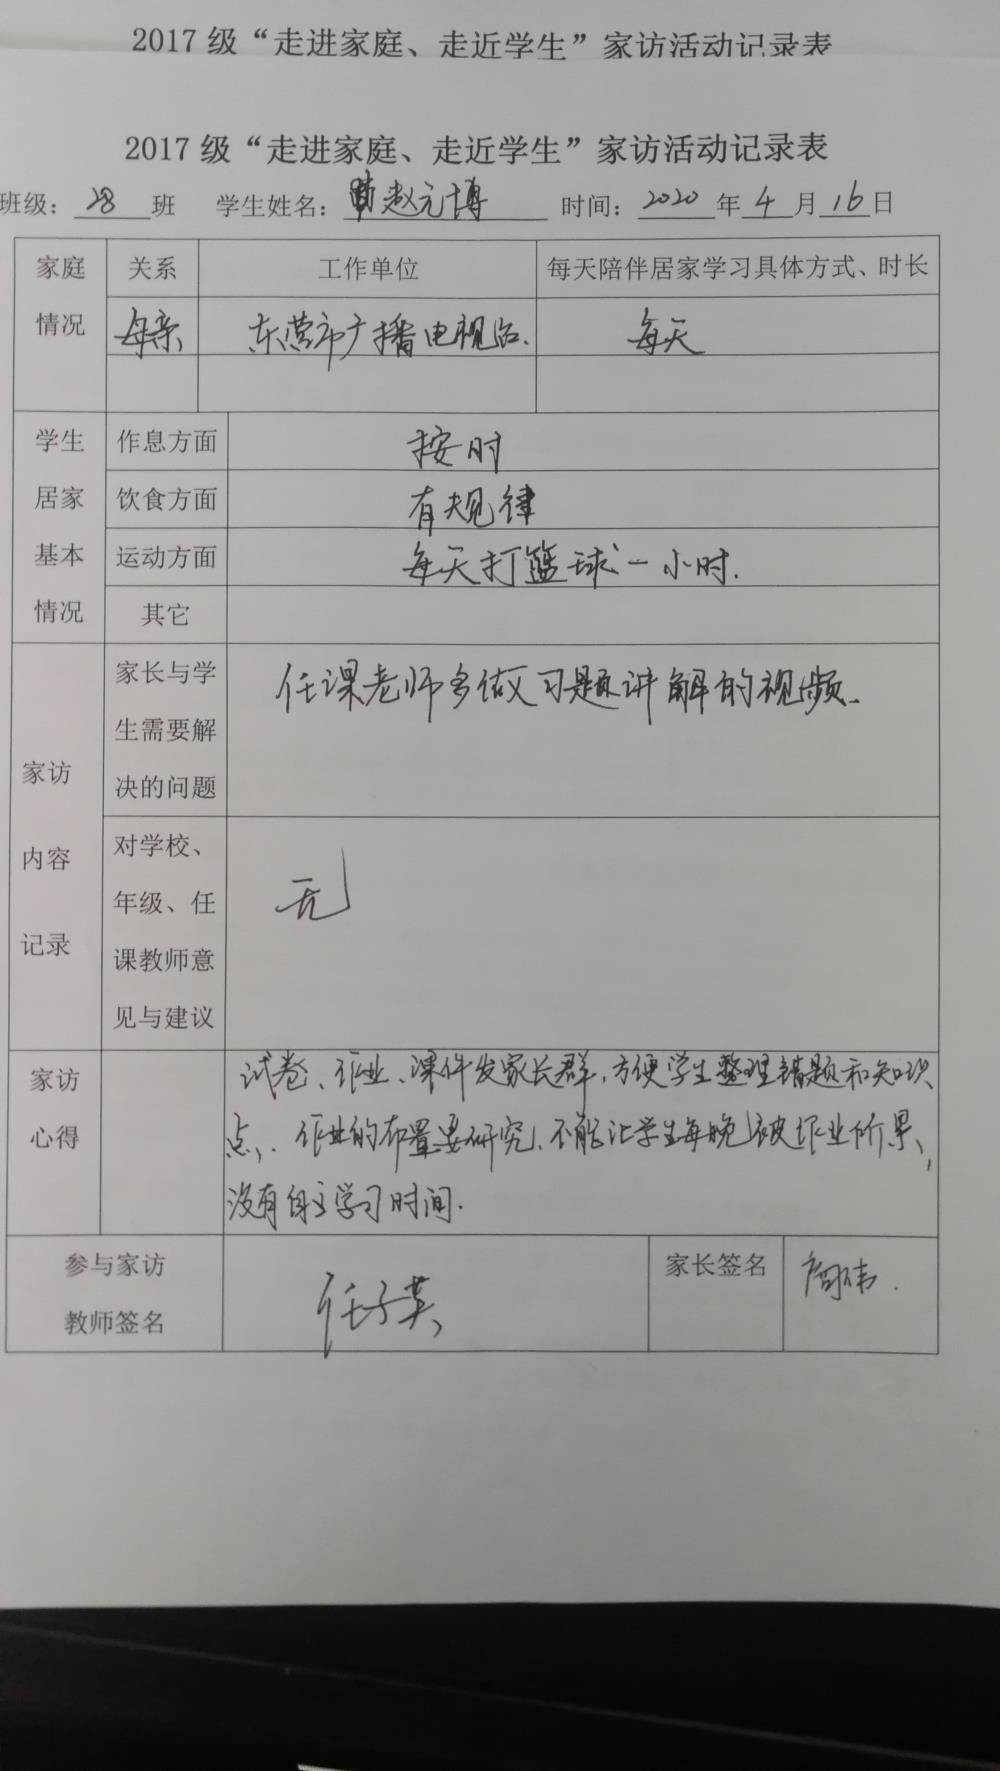 2017 级“走进家庭、走近学生”家访活动记录表
2017 级“走进家庭、走近学生”家访活动记录表
班级：28 班 学生姓名：赵元博 时间：2020 年 4 月 16 日
家庭情况 关系 工作单位 每天陪伴居家学习具体方式、时长
母亲 东营市广播电视台. 每天
学生居家基本情况 作息方面 按时
饮食方面 有规律
运动方面 每天打篮球一小时.
其它
家访内容记录
家长与学
生需要解
决的问题
任课老师多做习题讲解的视频.
对学校、
年级、任
课教师意
见与建议
无
家访
心得
试卷、作业、课件发家长群,方便学生整理错题和知识
点,. 作业的布置要研究,不能让学生每晚被作业所累,
没有自主学习时间.
参与家访
教师签名
任子英
家长签名